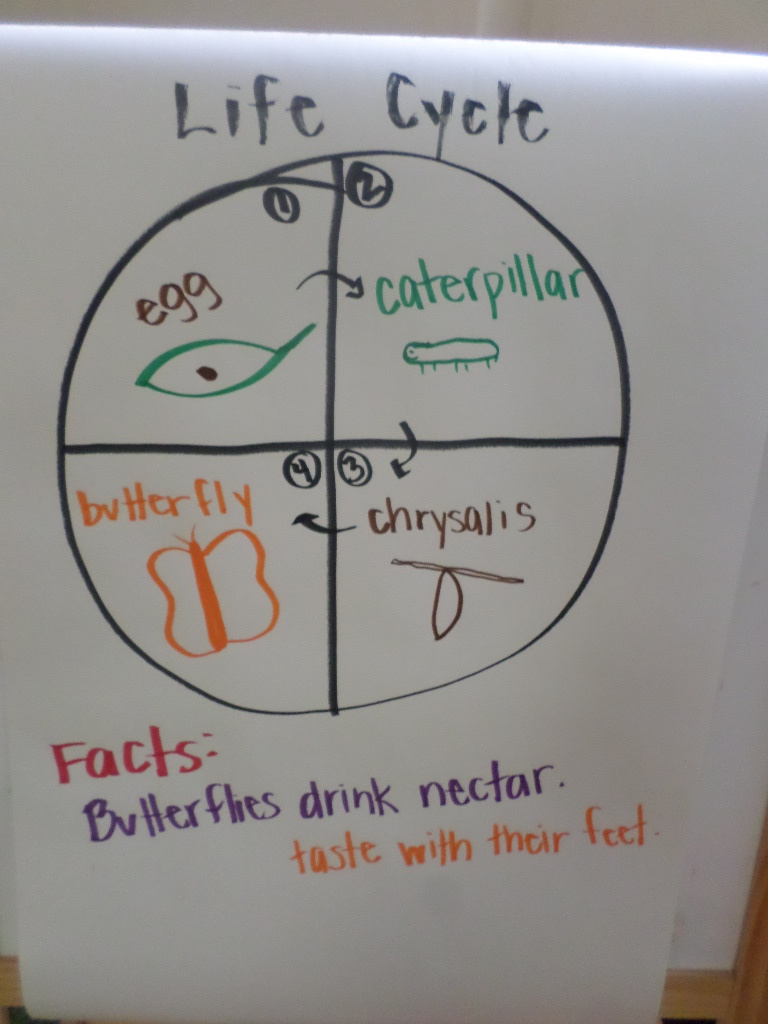 Life Cycle
1
2
egg
caterpillar
4
3
butterfly
chrysalis
Facts:
Butterflies drink nectar.
taste with their feet.